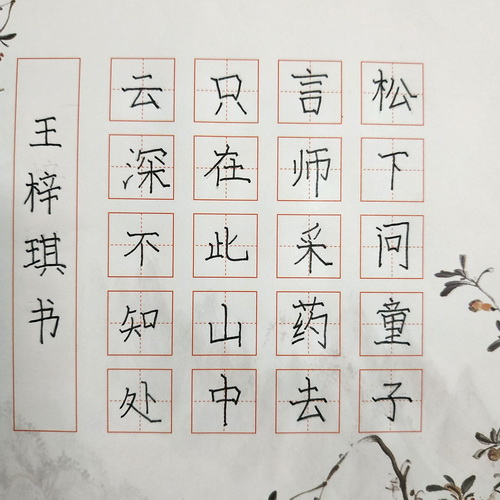 松下问童子
言师采药去
只在此山中
云深不知处
王梓琪书